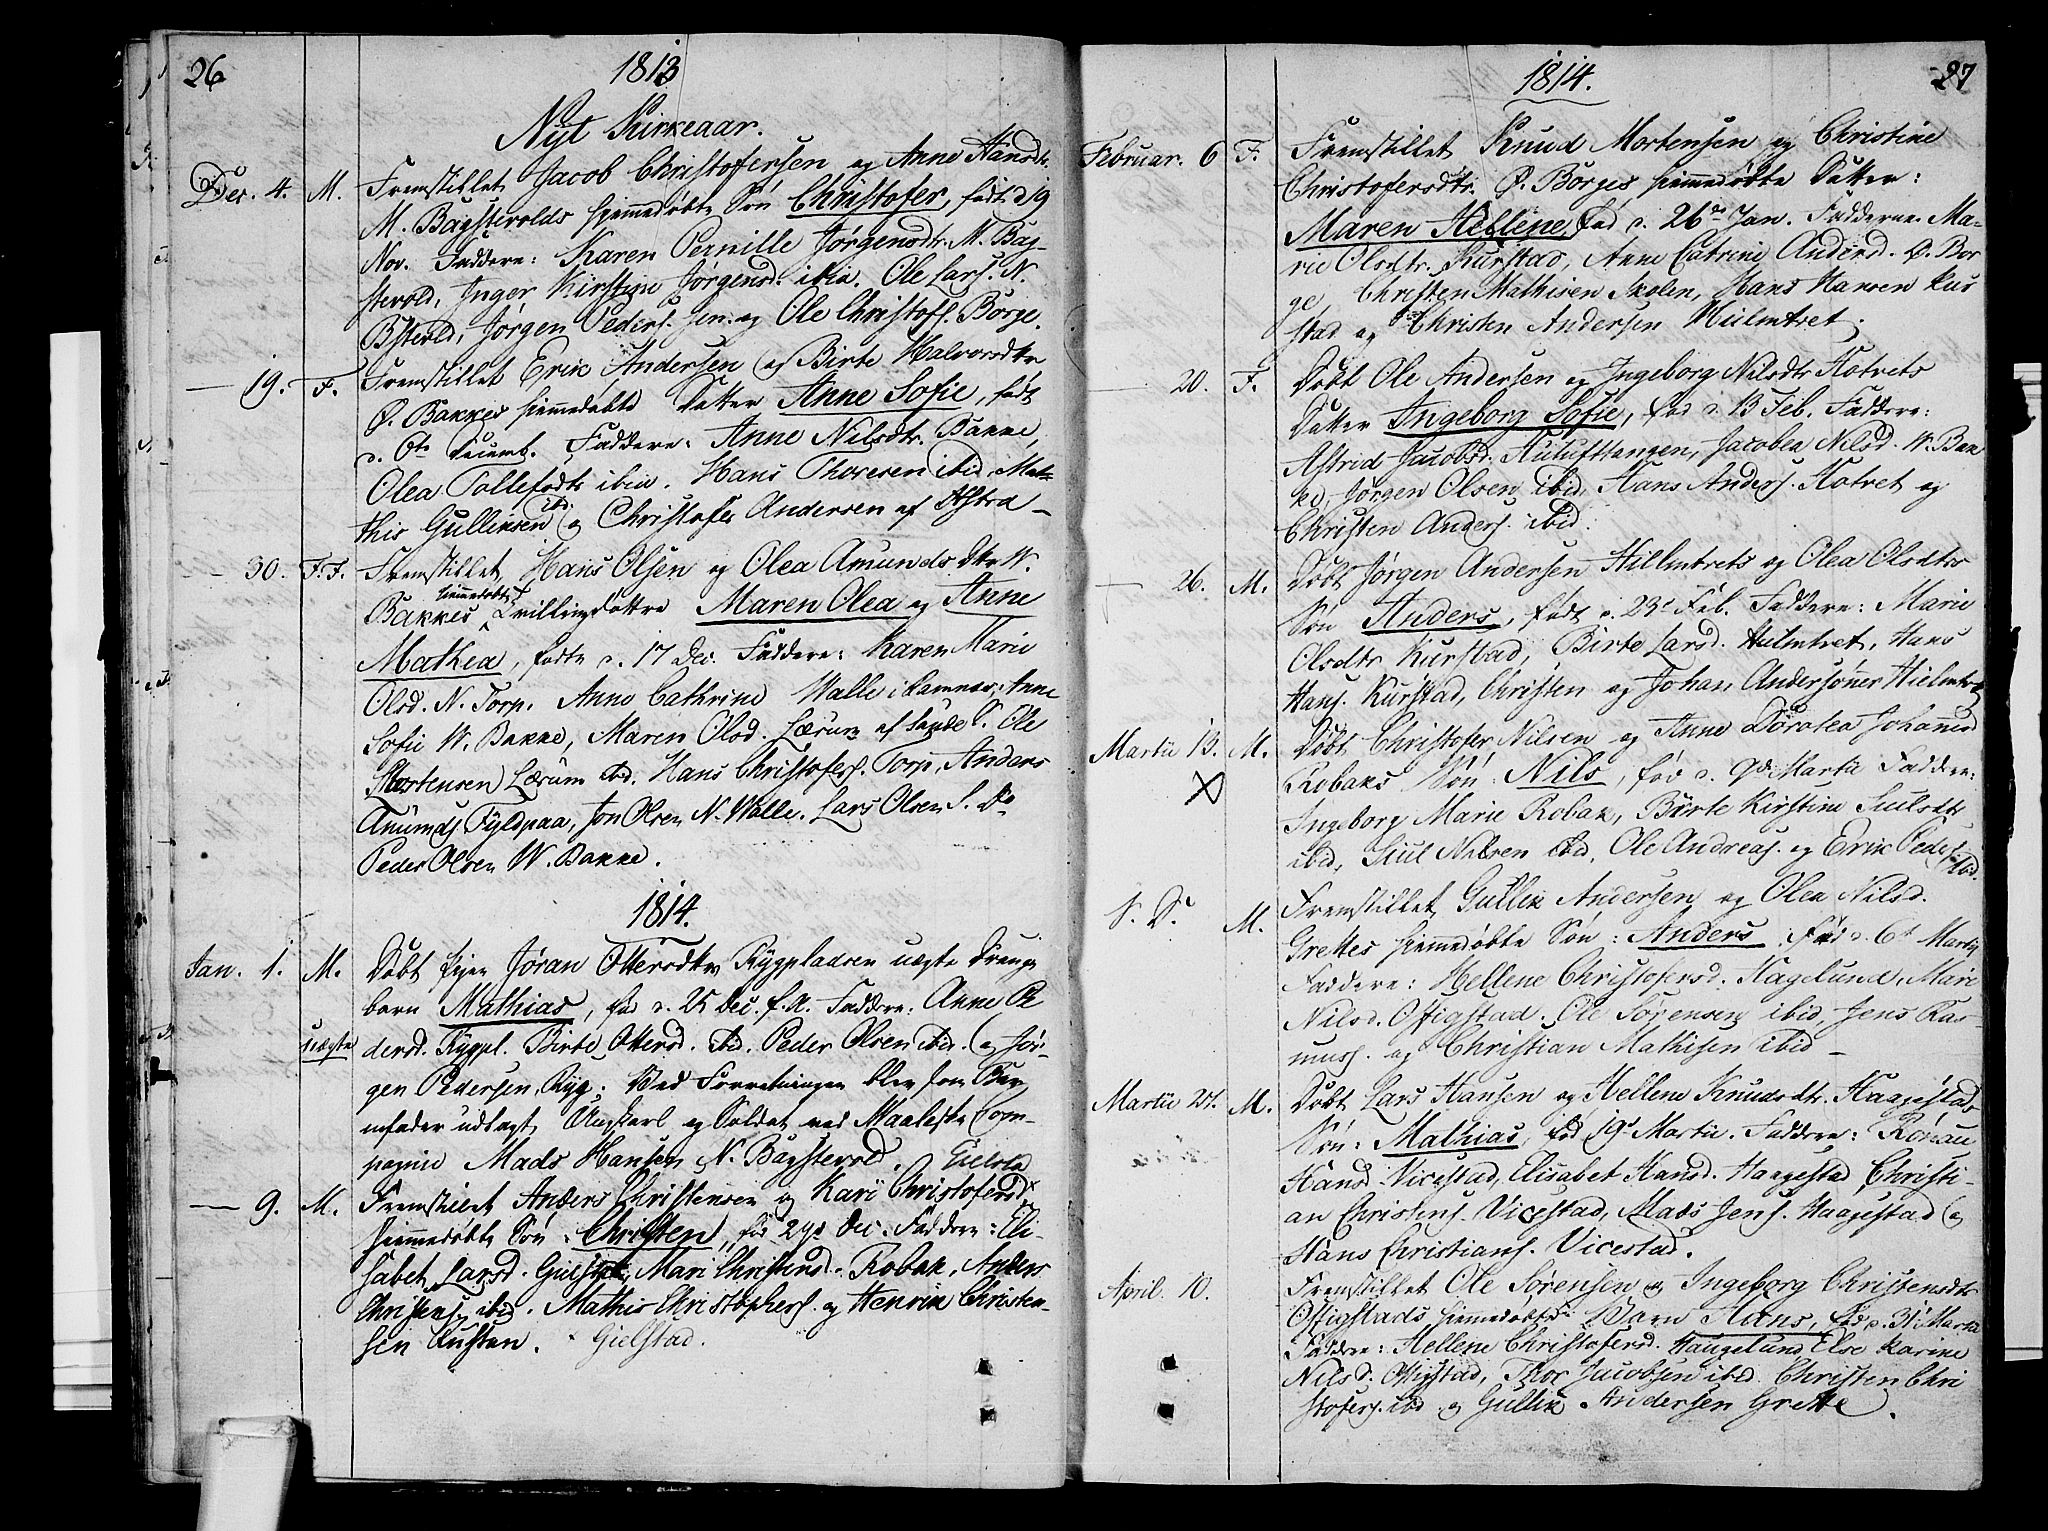 26
1813
Nyt Kirkeaar.
Dec. 4. M. Fremstillet Jacob Christofersen og Anne Hansdtr.
M. Baystevolds hjemmedøbte Søn Christofer, født d. 9
Nov. Faddere: Karen Pernille Jørgensdtr. M. Bay-
stevold, Inger Kirstine Jørgensd. ibid. Ole Lars. N.
Bstvold, Jørgen Peders. sen. og Ole Christofs. Borge.
19. F. Fremstillet Erik Andersen og Birte Halvorsdtr
Ø. Bakkes hjemmedøbte Datter Anne Sofie, født
d. 6te Decemb. Faddere: Anne Nilsdtr. Bakke,
Olea Tollefsdtr ibid. Hans Thoresen ibid. Mat-
this Gulliksen ibd. og Christofer Andersen af Astra –
30. F. F. Fremstillet Hans Olsen og Olea Amundsdtr W.
Bakkes hjemmedøbte Tvillingdøttre Maren Olea og Anne
Mathea, fødte d. 17 Dec. Faddere: Karen Marie
Olsd. N. Torp. Anne Cathrine Walle i Ramnæs, Anne
Sofie W. Bakke, Maren Olsd. Lærum af Sande S. Ole
Mortensen Lærum ibd. Hans Christofers. Torp, Anders
Amunds. Fyldpaa, Jon Olsen N. Walle. Lars Olsen S. Do
Peder Olsen W. Bakke.
1814.
Jan. 1. M. Døbt Pigen Jøran Ottersdtr Rygpladsen uægte Drenge
barn Mathias, fød d. 25 Dec. f. A. Faddere: Anne Pe
uægte dersd. Rygpl. Birte Ottersd. ibd. Peder Olsen ibid. og Jør-
gen Pedersen Ryg. Ved Forretningen blev som Bar-
nefader udlagt Ungkarl og Soldat ved Maaleske Com-
pagnie Mads Hansen N. Baystevold.
9. M. Fremstillet Anders Christensen og Kari Christofersd. Gielsta
hjemmedøbte Søn Christen, fød 29d Dec. Faddere: Eli-
sabet Larsd. Gielstad, Mari Christensd. Robak, Anders
Christens. ibid. Mathis Christophers. og Henrik Christen-
sen Rusten. × Gielstad.
27
1814.
Februar. 6 F. Fremstillet Knud Mortensen og Christine
Christofersdtr. Ø. Borges hjemmedøbte Datter:
Maren Hellene, fød d. 26de Jan. Fadderne: Ma-
rie Olsdtr. Kurstad, Anne Catrine Andersd. Ø. Bor
ge, Christen Mathisen Skolen, Hans Hansen Kur
stad og Christen Andersen Hulmtret.
20. F. Døbt Ole Andersen og Ingeborg Nilsdtr Hotvets
Datter Ingeborg Sofie, fød d. 13 Feb. Faddere:
Astrid Jacobsd. Aulufthangen, Jacobea Nilsd. W. Bak
ke, Jørgen Olsen ibid, Hans Anders. Hotvet og
Christen Anders. ibid.
26. M. Døbt Jørgen Andersen Hillmtrets og Olea Olsdtr
Søn Anders, født d. 23d Feb. Faddere: Marie
Olsdtr Kurstad, Birte Larsd. Hulmtret, Hans
Hans. Kurstad, Christen og Johan Andersøner Hielmtret
Martii 13. M. Døbt Christofer Nilsen og Anne Dorotea Johannsd
Robaks Søn: Nils, fød d. 9de Martii Faddere:
Ingeborg Marie Robak, Birte Kirstine Siulsdtr
ibid, Siul Nilsen ibid, Ole Andreas. og Erik Peders. ibd.
S. D. M. Fremstillet Gullik Andersen og Olea Nilsd.
Grettes hjemmedøbte Søn: Anders, fød d. 6t Martii
Faddere: Hellene Christofersd. Hagelund, Mari
Nilsd. Offigstad. Ole Sørensen ibid, Jens Ras-
muss. og Christian Mathisen ibid –
Martii 27. M. Døbt Lars Hansen og Hellene Knudsdtr. Haagestads
Søn: Mathias, fød 19d Martii. Faddere: Rønau
Hansd. Vicestad, Elisabet Hansd. Haagestad, Christi-
an Christens. Vicestad, Mads Jens. Haagestad og
Hans Christians. Vicestad.
April. 10. Fremstillet Ole Sørensen og Ingeborg Christensdtr
Offigstads hjemmedøbte Barn Hans, fød d. 31 Martii
Faddere: Hellene Christofersd. Haugelund, Else Karine
Nilsd. Offigstad, Thor Jacobsen ibid. Christen Chri
stofers. ibd og Gullik Andersen Grette.